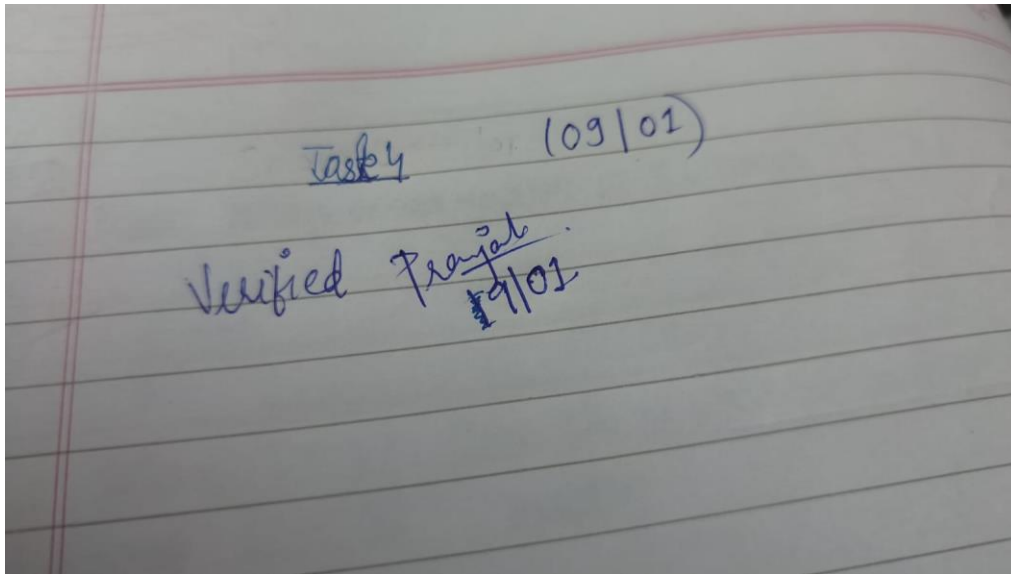 Task 4 (09/01)
Verified Pranjal
9/01